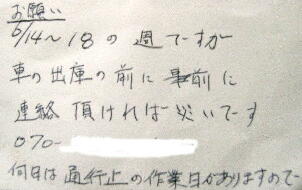 お願い
6/14～18の週ですが
車の出庫の前に事前に
連絡頂ければ災いです
070-
何日は通行止の作業日がありますので